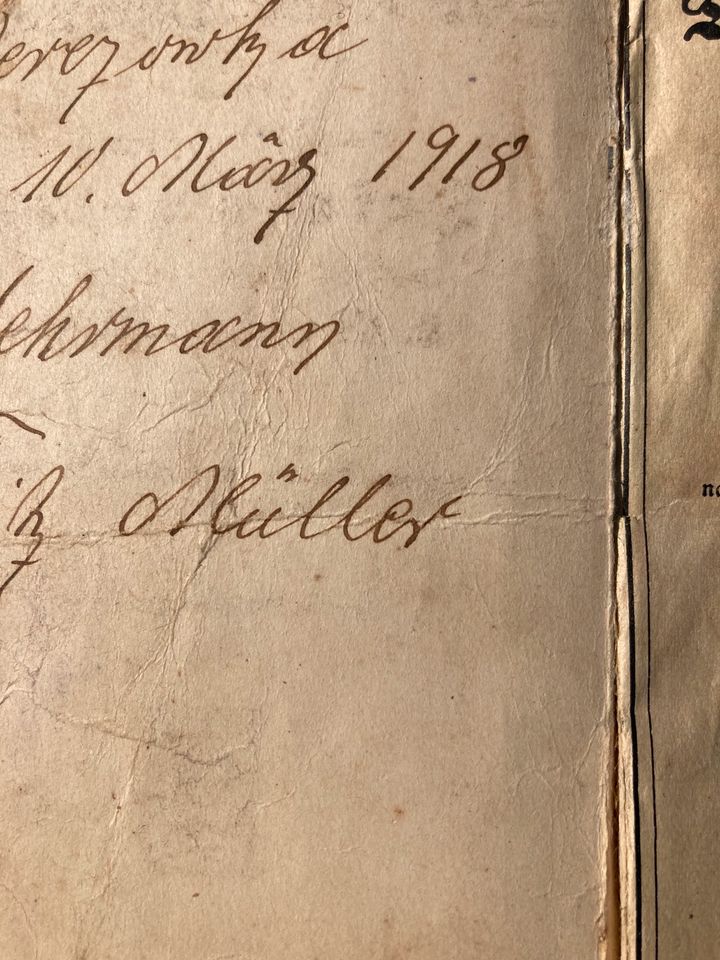 erezowka
10. März 1918
ehrmann
itz Müller